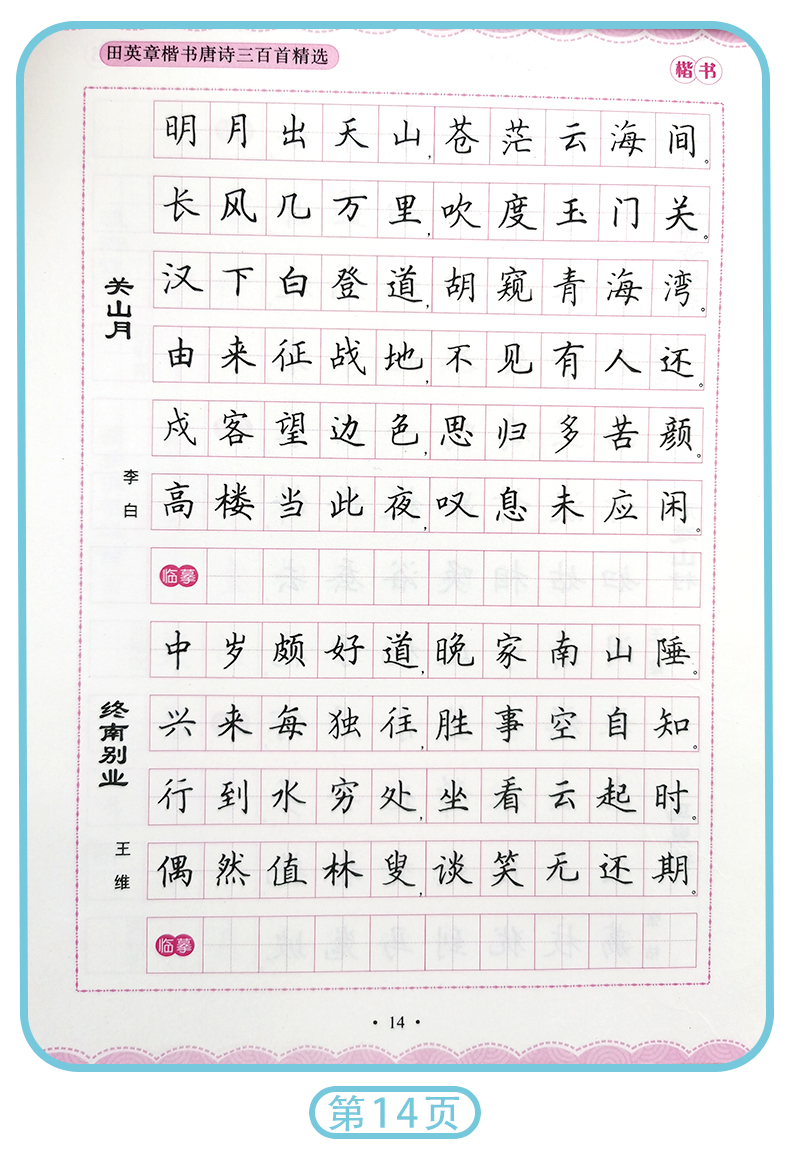 田英章楷书唐诗三百首精选
楷书
关山月
李白
明月出天山,苍茫云海间。
长风几万里,吹度玉门关。
汉下白登道,胡窥青海湾。
由来征战地,不见有人还。
戍客望边色,思归多苦颜。
高楼当此夜,叹息未应闲。
临摹
终南别业
王维
中岁颇好道,晚家南山陲。
兴来每独往,胜事空自知。
行到水穷处,坐看云起时。
偶然值林叟,谈笑无还期。
临摹
·14·
第14页